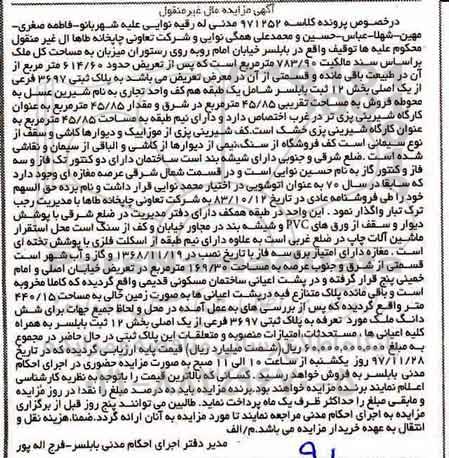 آگهی مزایده مال غیرمنقول
درخصوص پرونده کلاسه ۹۷۱۴۵۲ مدنی له رقیه نوایی علیه شهربانو-فاطمه صغری-
مهین-شهلا-عباس-حسین و محمدعلی همگی نوایی و شرکت تعاونی چاپخانه طاها ال غیر منقول
محکوم علیه ها توقیف واقع در بابلسر خیابان امام روبه روی رستوران میزبان به مساحت کل ملک
براساس سند مالکیت ۷۸۳/۹۰ مترمربع است که پس از تعریض حدود ۶۱۴/۶۰ متر مربع از
آن در طبیعت باقی مانده و قسمتی از آن در معرض تعریض می باشد به پلاک ثبتی ۳۶۹۷ فرعی
از یک اصلی بخش ۱۲ ثبت بابلسر شامل یک طبقه هم کف واحد تجاری به نام شیرین عسل به
محوطه فروش به مساحت تقریبی ۴۵/۸۵ مترمربع در شرق و مقدار ۴۵/۸۵ مترمربع به عنوان
کارگاه شیرینی پزی تر در غرب اختصاص دارد و دارای نیم طبقه به مساحت ۴۵/۸۵ مترمربع به
عنوان کارگاه شیرینی پزی خشک است.کف شیرینی پزی از موزاییک و دیوارها کاشی و سقف از
نوع سیمانی است کف فروشگاه از سنگ،نیمی از دیوارها از کاشی و الباقی از سیمان و نقاشی
شده است .ضلع شرقی و جنوبی دارای شیشه بند است ساختمان دارای دو کنتور تک فاز و سه
فاز و کنتور گاز به نام حسین نوایی است و در قسمت شمال شرقی عرصه مغازه ای وجود دارد
که سابقا در سال ۷۰ به عنوان اتوشویی در اختیار محمد نوایی قرار داشت و نام برده حق السهم
خود را طی فروشنامه عادی در تاریخ ۸۳/۱۰/۱۲ به شرکت تعاونی چاپخانه طاها با مدیریت رجب
ترک تبار واگذار نمود . این واحد در طبقه همکف دارای دفتر مدیریت در ضلع شرقی با پوشش
دیوار و سقف از ورق های PVC و شیشه بند در مجاور خیابان و کف از سنگ است محل استقرار
ماشین آلات چاپ در ضلع غربی است به علاوه دارای نیم طبقه از اسکلت فلزی با پوشش تخته ای
است . مغازه دارای امتیاز برق سه فاز با تاریخ نصب در ۱۳۶۸/۱۱/۲۱ و گاز و آب شهر است
قسمتی از شرق و جنوب عرصه به مساحت ۱۶۹/۳۰ مترمربع در تعریض خیابان اصلی و امام
خمینی پنج قرار گرفته و در پشت اعیانی ساختمان مسکونی قدیمی واقع گردیده که کاملا مخروبه
است و باقی مانده پلاک متنازع فیه درپشت اعیانی ها به صورت زمین خالی به مساحت ۴۴۰/۱۵
متر واقع گردیده که پس از بررسی های به عمل آمده در محل و لحاظ جمیع جهات برای شش
دانگ ملک مورد تعرفه به پلاک ثبتی ۳۶۹۷ فرعی از یک اصلی بخش ۱۲ ثبت بابلسر به همراه
کلیه اعیانی ها ، مستحدثات،امتیازات منصوبه و متعلقات این پلاک ثبتی در حال حاضر در مجموع
به مبلغ ریال (شصت میلیارد ریال) قیمت پایه ارزیابی گردیده که در تاریخ
۹۷/۱۱/۲۸ روز یکشنبه از ساعت ۱۰ الی ۱۱ صبح به صورت مزایده حضوری در اجرای احکام
مدنی بابلسر به فروش خواهد رسید. کسانی که بالاترین قیمت را باتوجه به نظریه کارشناسی
اعلام نمایند برنده مزایده خواهند بود.برنده مزایده باید ده درصد مبلغ را نقدا در روز مزایده
و مابقی مبلغ را حداکثر ظرف یک ماه پرداخت نماید. طالبین می توانند پنج روز قبل از برگزاری
مزایده به اجرای احکام مدنی مراجعه نمایند تا مورد مزایده به آنان ارائه گردد.ضمنا،هزینه نقل و
انتقال به عهده خریدار مزایده می باشد.م/الف
مدیر دفتر اجرای احکام مدنی بابلسر-فرج اله پور